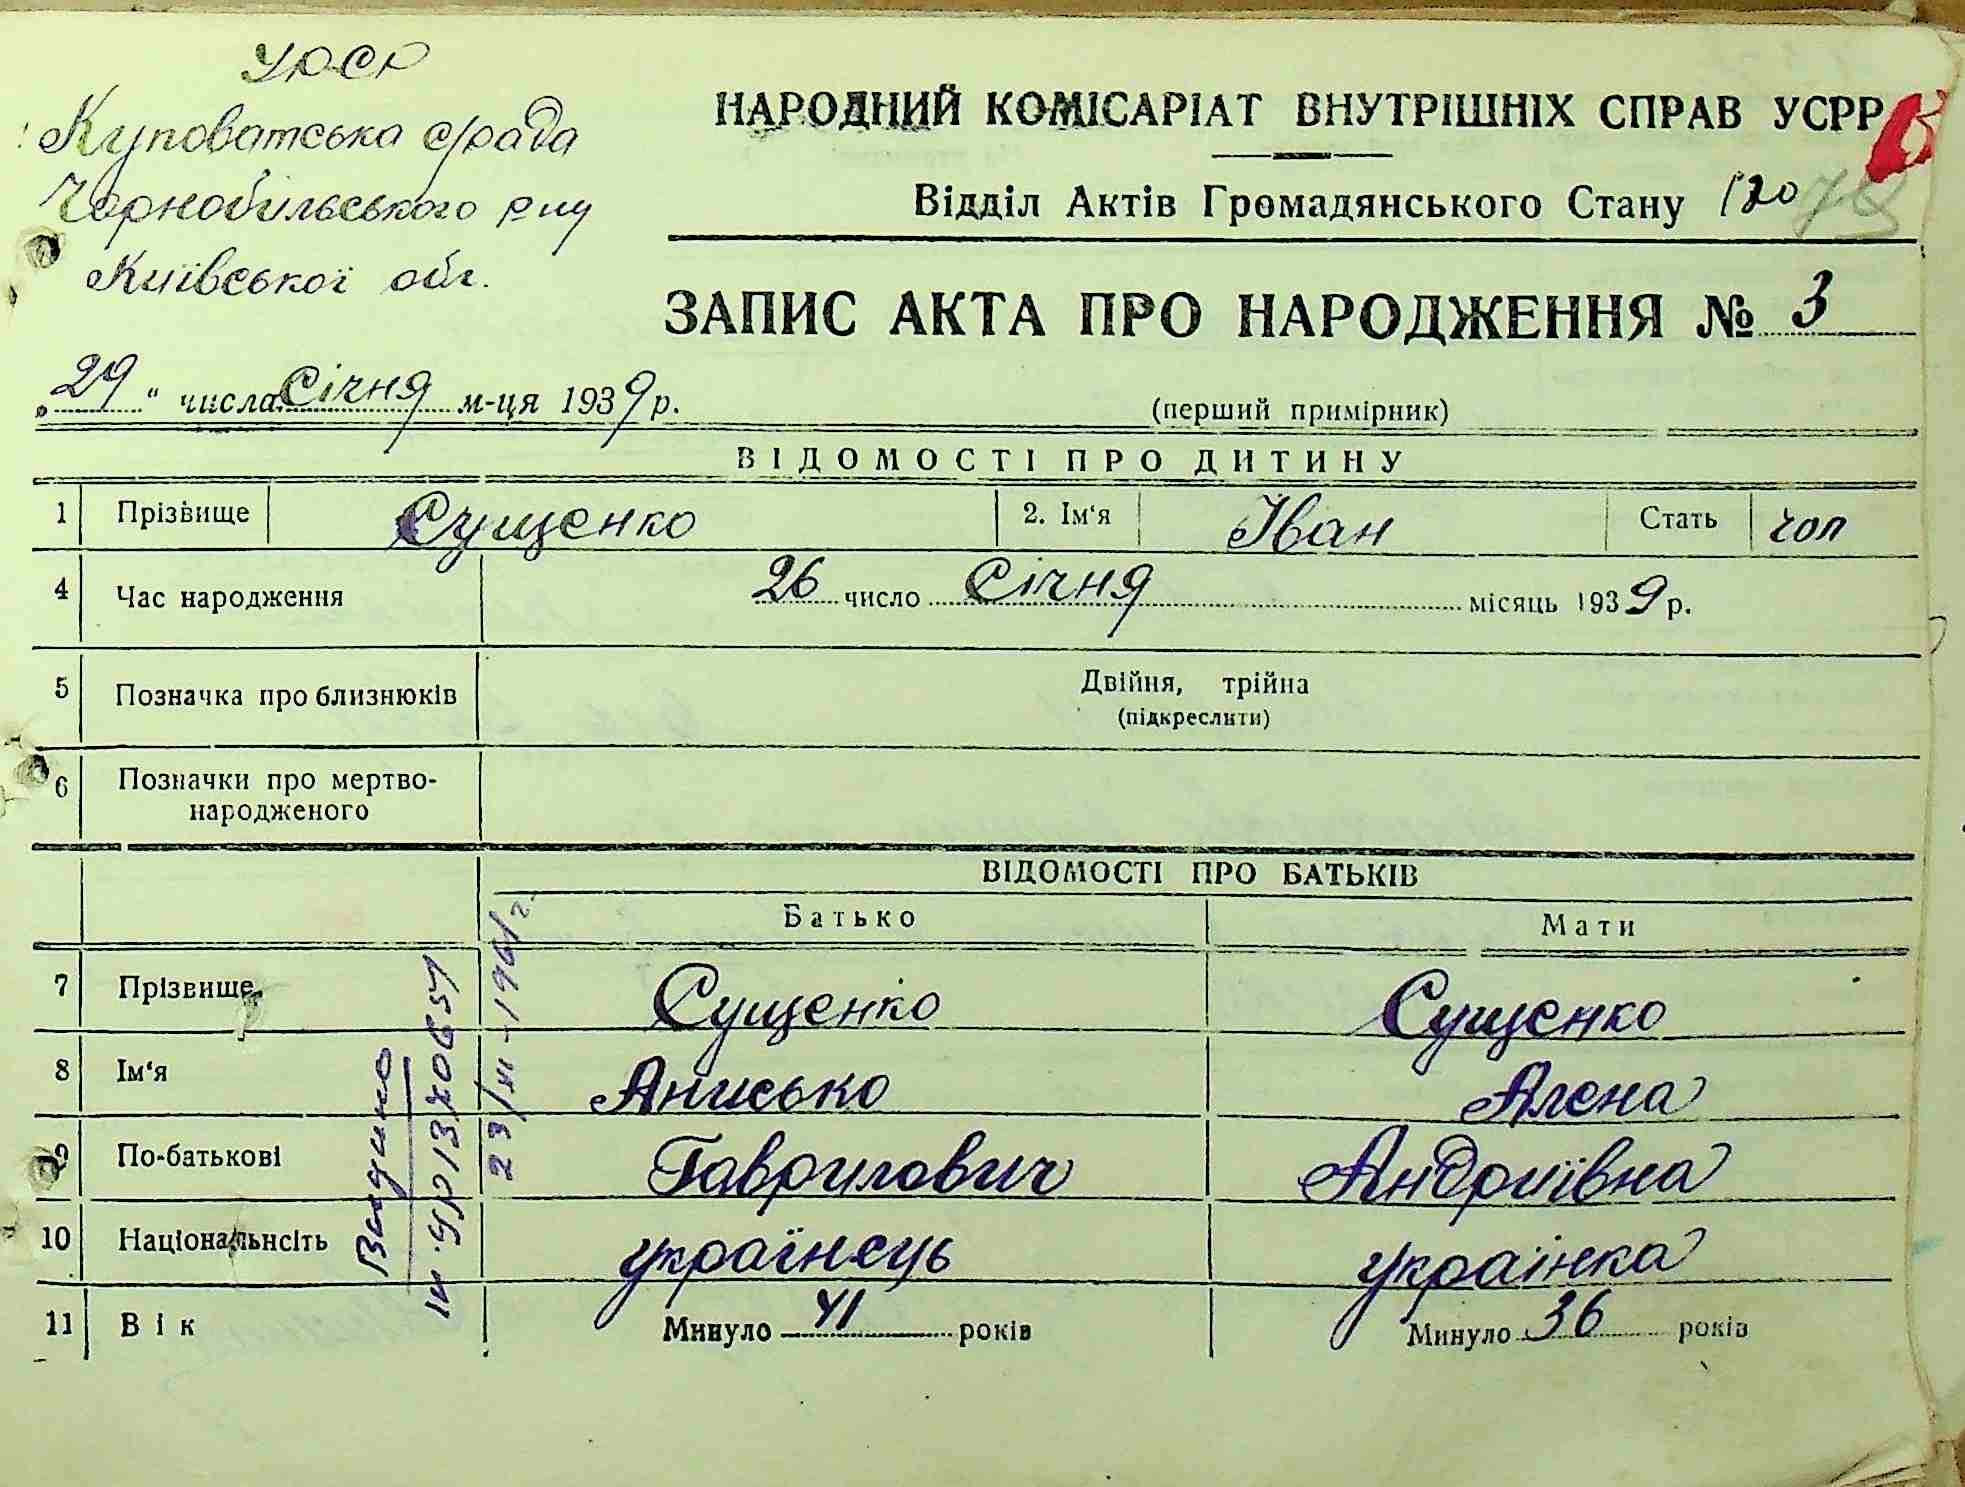 УРСР
Куповатська с/рада
Чорнобільського р-ну
Київської обл.
НАРОДНИЙ КОМІСАРІАТ ВНУТРІШНІХ СПРАВ УСРР
Відділ Актів Громадянського Стану 120
ЗАПИС АКТА ПРО НАРОДЖЕННЯ № 3
„29“ числа січня м-ця 1939 р.
(перший примірник)
ВІДОМОСТІ ПРО ДИТИНУ
1 Прізвище Сущенко 2. Ім‘я Іван Стать чол
4 Час народження 26 число Січня місяць 1939 р.
5 Позначка про близнюків Двійня, трійна
(підкреслити)
6 Позначки про мертво-
народженого
ВІДОМОСТІ ПРО БАТЬКІВ
Батько Мати
7 Прізвище Сущенко Сущенко
8 Ім‘я Анисько Алєна
9 По-батькові Гаврилович Андриївна
10 Національнсіть українець українка
11 Вік Минуло 41 років Минуло 36 років
23/XI-1961 г.